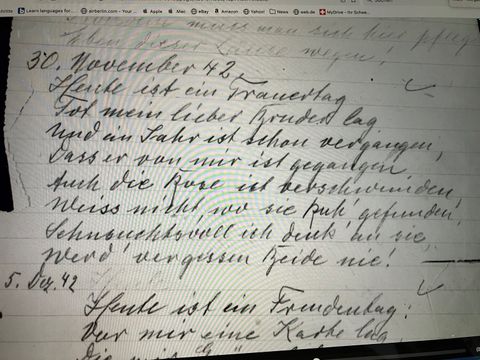 Learn languages for... airberlin.com Apple eBay Amazon Yahoo! News web.de MyDrive - Ihr Schee...
muss man sich hier
eben dieser wegen,
30. November 42.
Heute ist ein Trauertag
Tot mein lieber Bruder lag
Und ein Jahr ist schon vergangen,
Dass er von mir ist gegangen
Auch die Rose ist verschwunden,
Weiss nicht, wo sie Ruh' gefunden,
Sehnsuchtsvoll ich denk' an sie,
Werd' vergessen Beide nie!
5. Dez. 42
Heute ist ein Freudentag:
Vor mir eine Karte lag
Die mir